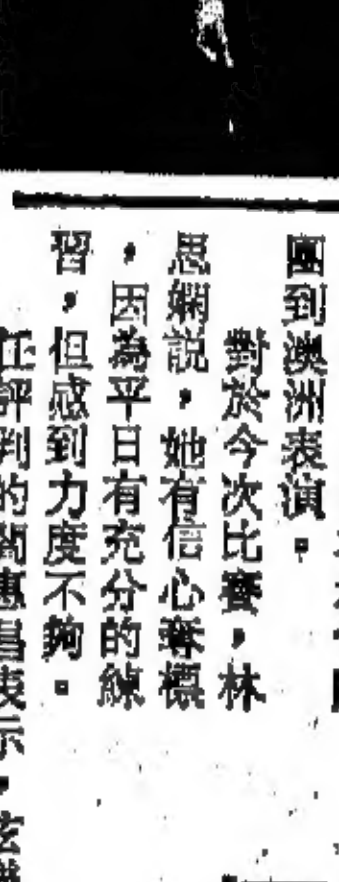 團到澳洲表演。
對於今次比賽，林
思嫻説，她有信心奪標
，因為平日有充分的練
習，但感到力度不夠。
任評判的閻惠昌表示，